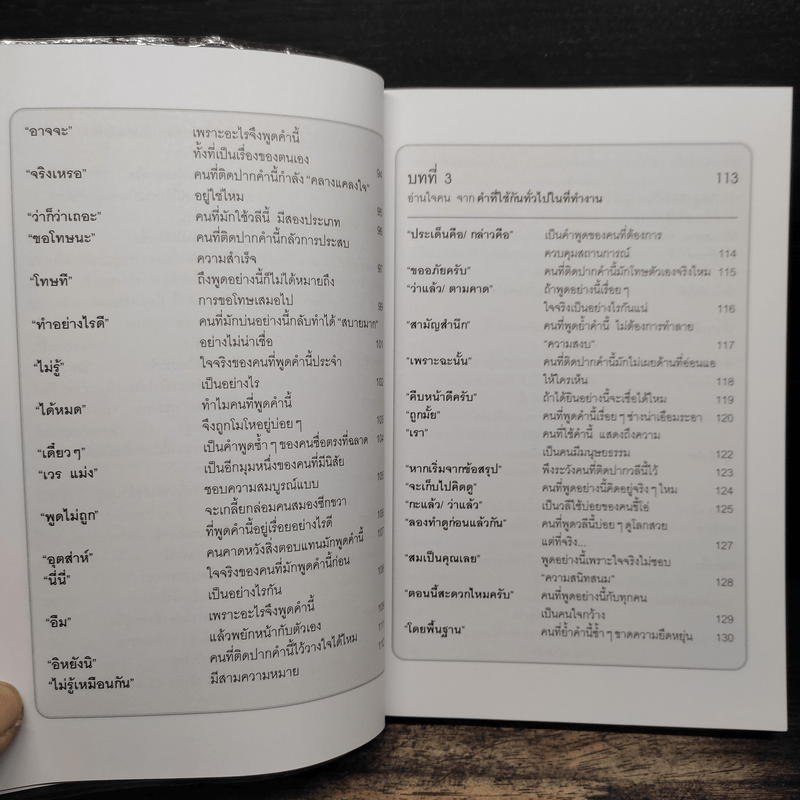 "อาจจะ" เพราะอะไรจึงพูดคำนี้
ทั้งที่เป็นเรื่องของตนเอง 94
"จริงเหรอ" คนที่ติดปากคำนี้กำลัง "คลางแคลงใจ"
อยู่ใช่ไหม 95
"ว่าก็ว่าเถอะ" คนที่มักใช้วลีนี้ มีสองประเภท 96
"ขอโทษนะ" คนที่ติดปากคำนี้กลัวการประสบ
ความสำเร็จ 97
"โทษที" ถึงพูดอย่างนี้ก็ไม่ได้หมายถึง
การขอโทษเสมอไป 99
"ทำอย่างไรดี" คนที่มักบ่นอย่างนี้กลับทำได้ "สบายมาก"
อย่างไม่น่าเชื่อ 101
"ไม่รู้" ใจจริงของคนที่พูดคำนี้ประจำ
เป็นอย่างไร 102
"ได้หมด" ทำไมคนที่พูดคำนี้
จึงถูกโมโหอยู่บ่อยๆ 103
"เดี๋ยวๆ" เป็นคำพูดซ้ำๆ ของคนซื่อตรงที่ฉลาด 104
"เวร แม่ง" เป็นอีกมุมหนึ่งของคนที่มีนิสัย
ชอบความสมบูรณ์แบบ 105
"พูดไม่ถูก" จะเกลี้ยกล่อมคนสมองซีกขวา
ที่พูดคำนี้อยู่เรื่อยอย่างไรดี 106
"อุตส่าห์" คนคาดหวังสิ่งตอบแทนมักพูดคำนี้ 107
"นี่นี่" ใจจริงของคนที่มักพูดคำนี้ก่อน
เป็นอย่างไรกัน 108
"อืม" เพราะอะไรจึงพูดคำนี้
แล้วพยักหน้ากับตัวเอง 109
"อิหยังนิ" คนที่ติดปากคำนี้ไว้วางใจได้ไหม 111
"ไม่รู้เหมือนกัน" มีสามความหมาย 112
บทที่ 3 113
อ่านใจคน จาก คำที่ใช้กันทั่วไปในที่ทำงาน
"ประเด็นคือ/ กล่าวคือ" เป็นคำพูดของคนที่ต้องการ
ควบคุมสถานการณ์ 114
"ขออภัยครับ" คนที่ติดปากคำนี้มักโทษตัวเองจริงไหม 115
"ว่าแล้ว/ ตามคาด" ถ้าพูดอย่างนี้เรื่อยๆ
ใจจริงเป็นอย่างไรกันแน่ 116
"สามัญสำนึก" คนที่พูดย้ำคำนี้ ไม่ต้องการทำลาย
"ความสงบ" 117
"เพราะฉะนั้น" คนที่ติดปากคำนี้มักไม่เผยด้านที่อ่อนแอ
ให้ใครเห็น 118
"คืบหน้าดีครับ" ถ้าได้ยินอย่างนี้จะเชื่อได้ไหม 119
"ถูกมั้ย" คนที่พูดคำนี้เรื่อยๆ ช่างน่าเอือมระอา 120
"เรา" คนที่ใช้คำนี้ แสดงถึงความ
เป็นคนมีมนุษยธรรม 122
"หากเริ่มจากข้อสรุป" พึงระวังคนที่ติดปากวลีนี้ไว้ 123
"จะเก็บไปคิดดู" คนที่พูดอย่างนี้คิดอยู่จริงๆ ไหม 124
"กะแล้ว/ ว่าแล้ว" เป็นวลีใช้บ่อยของคนขี้โอ่ 125
"ลองทำดูก่อนแล้วกัน" คนที่พูดวลีนี้บ่อยๆ ดูโลกสวย
แต่ที่จริง... 127
"สมเป็นคุณเลย" พูดอย่างนี้เพราะใจจริงไม่ชอบ
"ความสนิทสนม" 128
"ตอนนี้สะดวกไหมครับ" คนที่พูดอย่างนี้กับทุกคน
เป็นคนใจกว้าง 129
"โดยพื้นฐาน" คนที่ย้ำคำนี้ซ้ำๆ ขาดความยืดหยุ่น 130